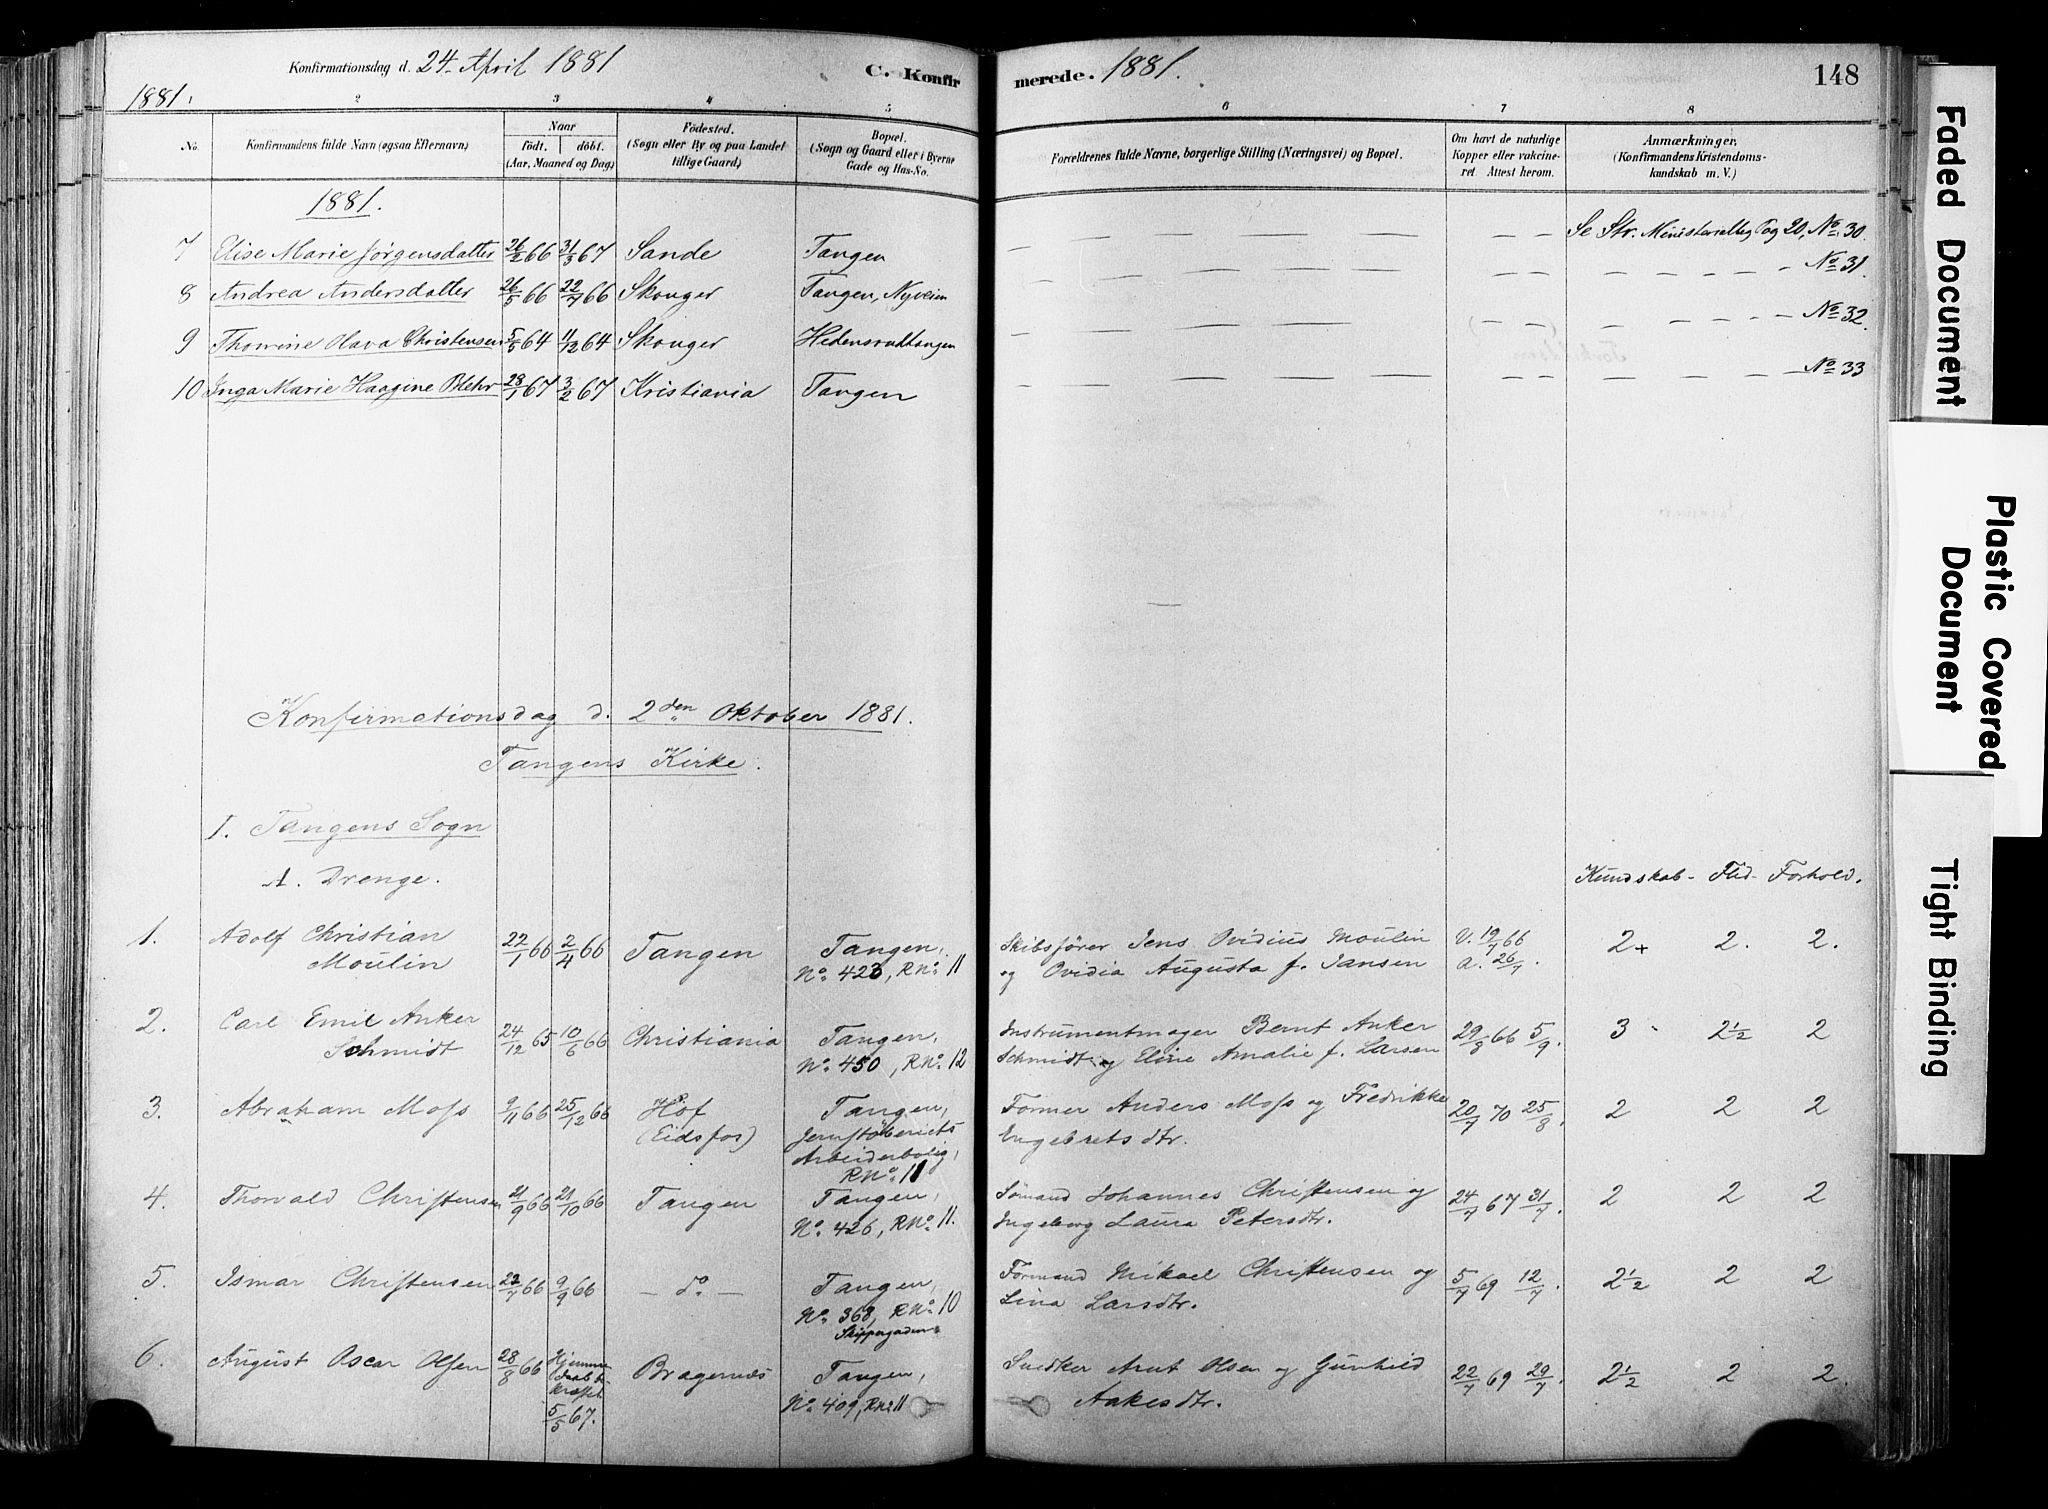 Konfirmationsdag d. 24. April 1881
C. Konfir
merede. 1881.
148
1881.
2 3 4 5 6 7 8
No.
Konfirmandens fulde Navn (ogsaa Efternavn)
Naar
födt. döbt.
(Aar, Maaned og Dag)
Födested.
(Sogn eller By og paa Landet
tillige Gaard)
Bopæl.
(Sogn og Gaard eller i Byerne
Gade og Hus-No.
Forældrenes fulde Navne, borgerlige Stilling (Næringsvei) og Bopæl.
Om havt de naturlige
Kopper eller vakcine-
ret Attest herom.
Anmærkninger.
(Konfirmandens Kristendoms-
kundskab m. V.)
1881.
7 Elise Marie Jørgensdatter 26/2 66 31/3 67 Sande Tangen — — — — — — Se Str. Ministerialbog Pag 20, No. 30.
8 Andrea Andersdatter 26/5 66 22/7 66 Skouger Tangen, Nyveien — — — — — — No. 31.
9 Thomine Olava Christensen 5/5 64 11/12 64 Skouger Hedensrudtangen — — — — — — No. 32.
10 Inga Marie Haagine Blehr 28/1 67 3/2 67 Kristiania Tangen — — — — — — No. 33
Konfirmationsdag d. 2den Oktober 1881.
Tangens Kirke.
I. Tangens Sogn
A. Drenge.
Kundskab - Flid - Forhold.
1. Adolf Christian
Moulin
22/1 66 2/4 66 Tangen
Tangen,
No. 423, RNo. 11
Skibsfører Jens Ovidius Moulin
og Ovidia Augusta f. Jansen
V. 19/7 66
A. 26/7.
2+ 2. 2.
2. Carl Emil Anker
Schmidt
24/12 65 10/6 66 Christiania
Tangen,
No. 450, RNo. 12
Instrumentmager Bernt Anker
Schmidt og Eline Amalie f. Larsen
29/8 66 5/9.
3 2½ 2
3. Abraham Moss
9/11 66 25/12 66
Hof
(Eidsfos)
Tangen,
Jernstøberiets
Arbeiderbolig,
RNo. 11
Former Anders Moss og Fredrikke
Engebretsdtr.
20/7 70 25/8.
2 2 2
4. Thorvald Christensen
21/9 66 21/10 66 Tangen
Tangen,
No. 426, RNo. 11.
Sømand Johannes Christensen og
Ingeborg Laura Petersdtr.
24/7 67 31/7.
2 2 2
5. Ismar Christensen
22/7 66 9/9 66 — do. —
Tangen,
No. 368, RNo. 10
Skippergaden
Formand Mikael Christensen og
Lina Larsdtr.
5/7 69 12/7.
2½ 2 2
6. August Oscar Olsen
28/8 66
Hjemme-
daab be-
kræftet
5/5 67.
Bragernæs
Tangen,
No. 409, RNo. 11
Snedker Arnt Olsen og Gunhild
Aakesdtr.
22/7 69 29/7.
2½ 2 2.
Faded Document
Plastic Covered
Document
Tight Binding